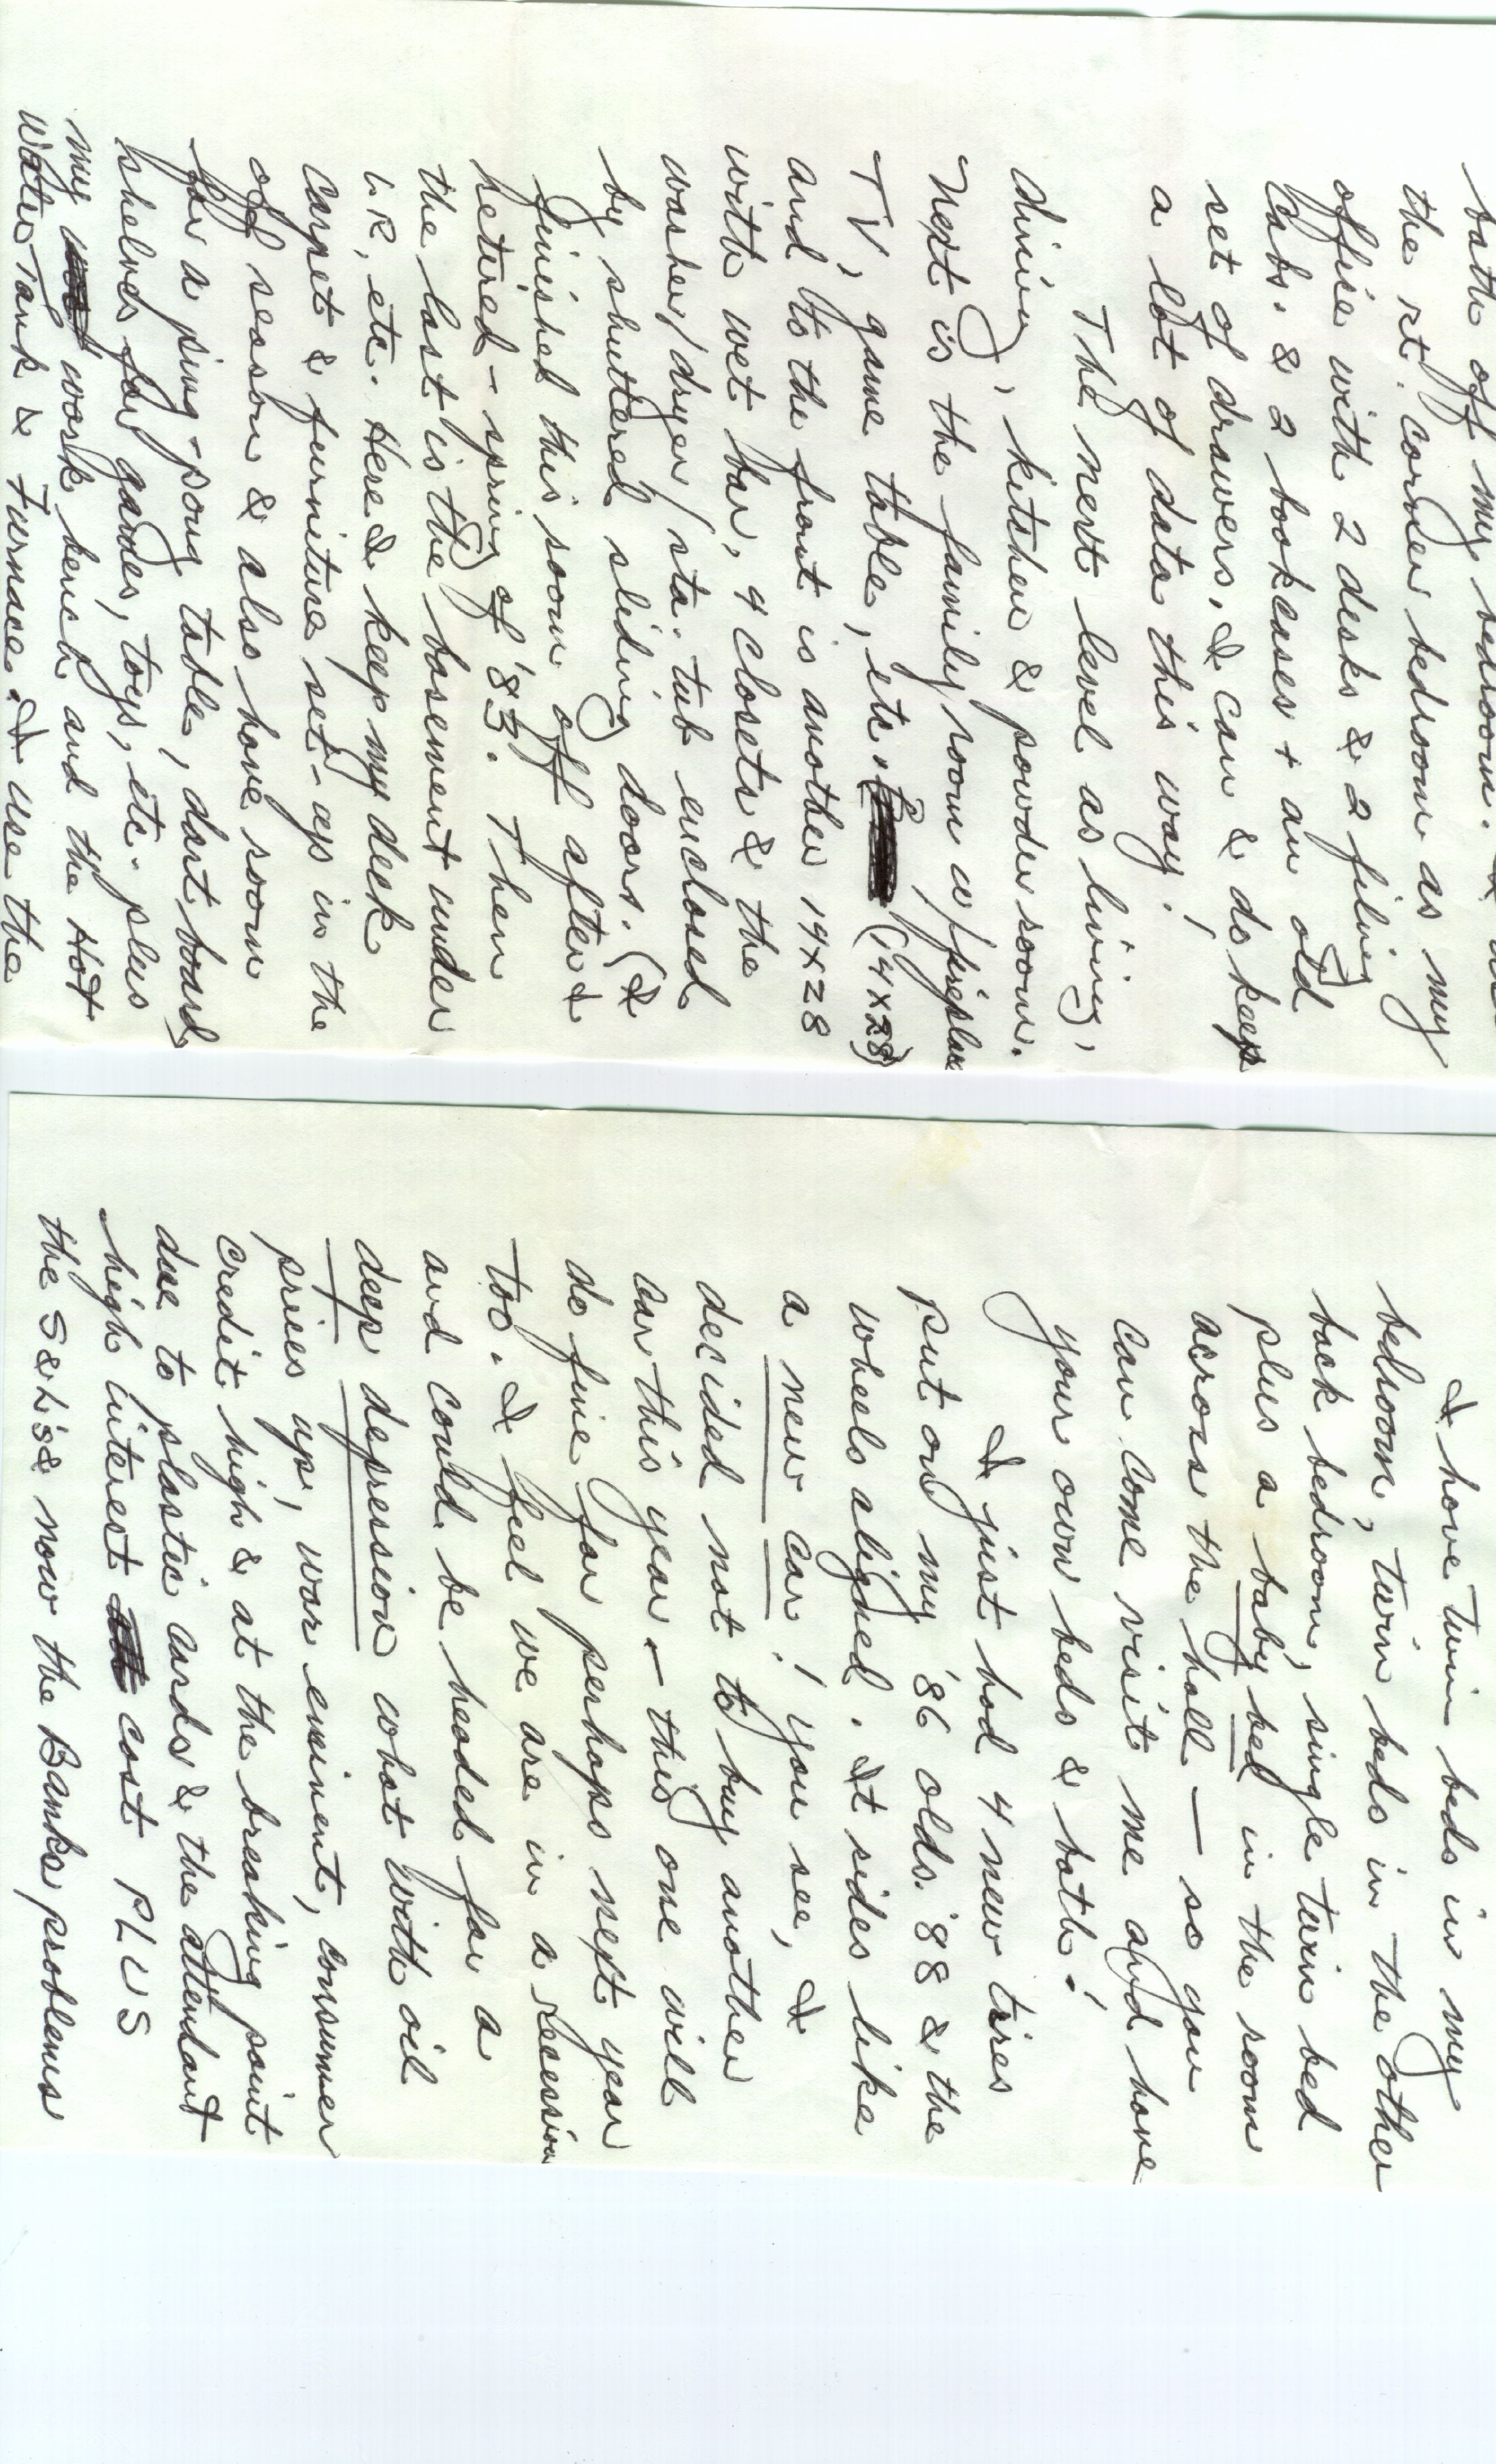 bath off my bedroom. I use
the rt. corner bedroom as my
office with 2 desks & 2 filing
cabs. & 2 bookcases + an old
set of drawers. I can & do keep
a lot of data this way!
The next level as living,
dining, kitchen & powder room.
Next is the family room w/fireplace
TV, game table, etc. (14x28)
and to the front is another 14x28
with wet bar, 4 closets & the
washer/dryer/sta. tub enclosed
by shuttered sliding doors. (I
finished this room off after I
retired - spring of '83. Then
the last is the basement under
LR, etc. Here I keep my deck
carpet & furniture set-ups in the
off season & also have room
for a ping-pong table, dart board,
shelves for games, toys, etc. plus
my work bench and the Hot
Water Tank & Furnace. I use the
I have twin beds in my
bedroom, twin beds in the other
back bedroom, single twin bed
plus a baby bed in the room
across the hall — so you
can come visit me and have
your own beds & bath!
I just had 4 new tires
put on my '86 olds. '88 & the
wheels aligned. It rides like
a new car! You see, I
decided not to buy another
car this year - this one will
do fine for perhaps next year
too. I feel we are in a recession
and could be headed for a
deep depression what with oil
prices up, war eminent, consumer
credit high & at the breaking point
due to plastic cards & the attendant
high interest cost PLUS
the S&L's & now the Banks problems